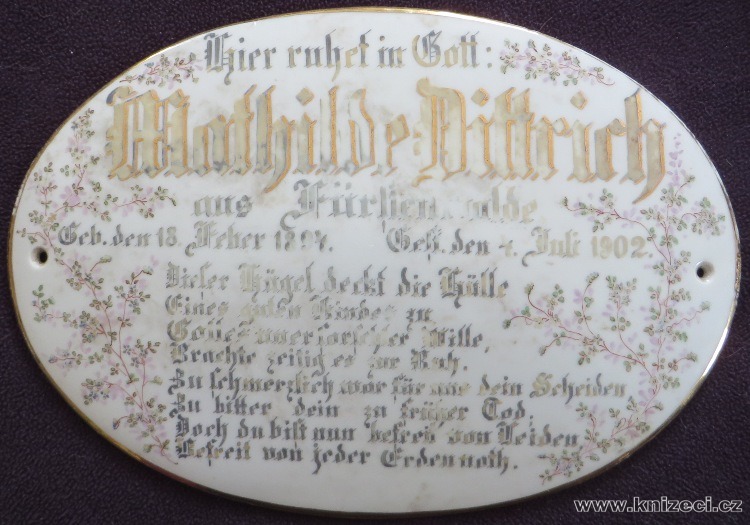 Hier ruhet in Gott:
Mathilde Dittrich
aus Fürstenwalde
Geb. den 18. Feber 1897. Gest. den 4. Juli 1902.
Dieser Hügel deckt die Hülle
Eines guten Kindes zu
Gottes unerforschter Wille,
Brachte zeitig es zur Ruh.
Zu schmerzlich war für uns dein Scheiden
Zu bitter dein zu früher Tod,
Doch du bist nun befreit von Leiden
Befreit von jeder Erdennoth.
www.knizeci.cz